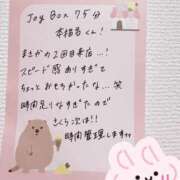 Joy Box 75分
本指名くん!
まさかの2回目来店...!
スピード感ありすぎて
ちょっとおもちがたな...笑
時間足りなすぎたので
さくら次は!!
時間管理します